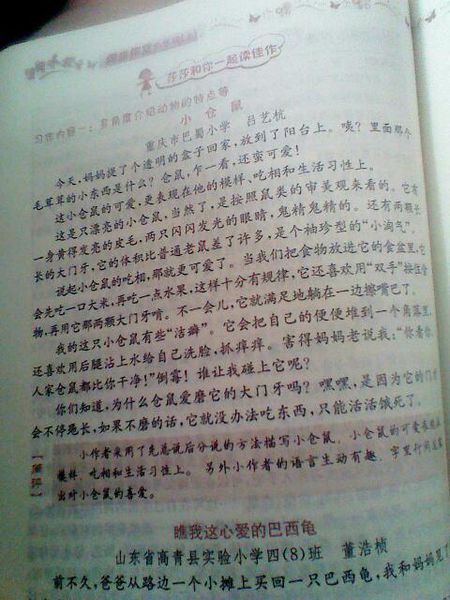 莎莎和你一起读佳作
习作内容一：多角度介绍动物的特点等
小仓鼠
重庆市巴蜀小学 吕艺杭
今天，妈妈提了个透明的盒子回家，放到了阳台上。咦？里面那个
毛茸茸的小东西是什么？仓鼠，乍一看，还蛮可爱！
这小仓鼠的可爱，更表现在他的模样、吃相和生活习性上。
这是只漂亮的小仓鼠，当然了，是按照鼠类的审美观来看的。它有
一身黄得发亮的皮毛，两只闪闪发光的眼睛，鬼精鬼精的。还有两颗长
长的大门牙，它的体积比普通老鼠差了许多，是个袖珍型的“小淘气”。
说起小仓鼠的吃相，那就更可爱了。当我们把食物放进它的食盆里，它
会先吃一口大米，再吃一点水果，这样十分有规律，它还喜欢用“双手”按住食
物，再用它那两颗大门牙啃。不一会儿，它就满足地躺在一边擦嘴巴了。
我的这只小仓鼠有些“洁癖”。它会把自己的便便堆到一个角落里，
还喜欢用后腿沾上水给自己洗脸，抓痒痒。害得妈妈老说我：“你看你，
人家仓鼠都比你干净！”倒霉！谁让我碰上它呢？
你们知道，为什么仓鼠爱磨它的大门牙吗？嘿嘿，是因为它的门牙
会不停地长，如果不磨的话，它就没办法吃东西，只能活活饿死了。
小作者采用了先总说后分说的方法描写小仓鼠，小仓鼠的可爱表现在
模样、吃相和生活习性上。另外小作者的语言生动有趣，字里行间流露
出对小仓鼠的喜爱。
瞧我这心爱的巴西龟
山东省高青县实验小学四(8)班 董浩桢
前不久，爸爸从路边一个小摊上买回一只巴西龟，我和妈妈见了